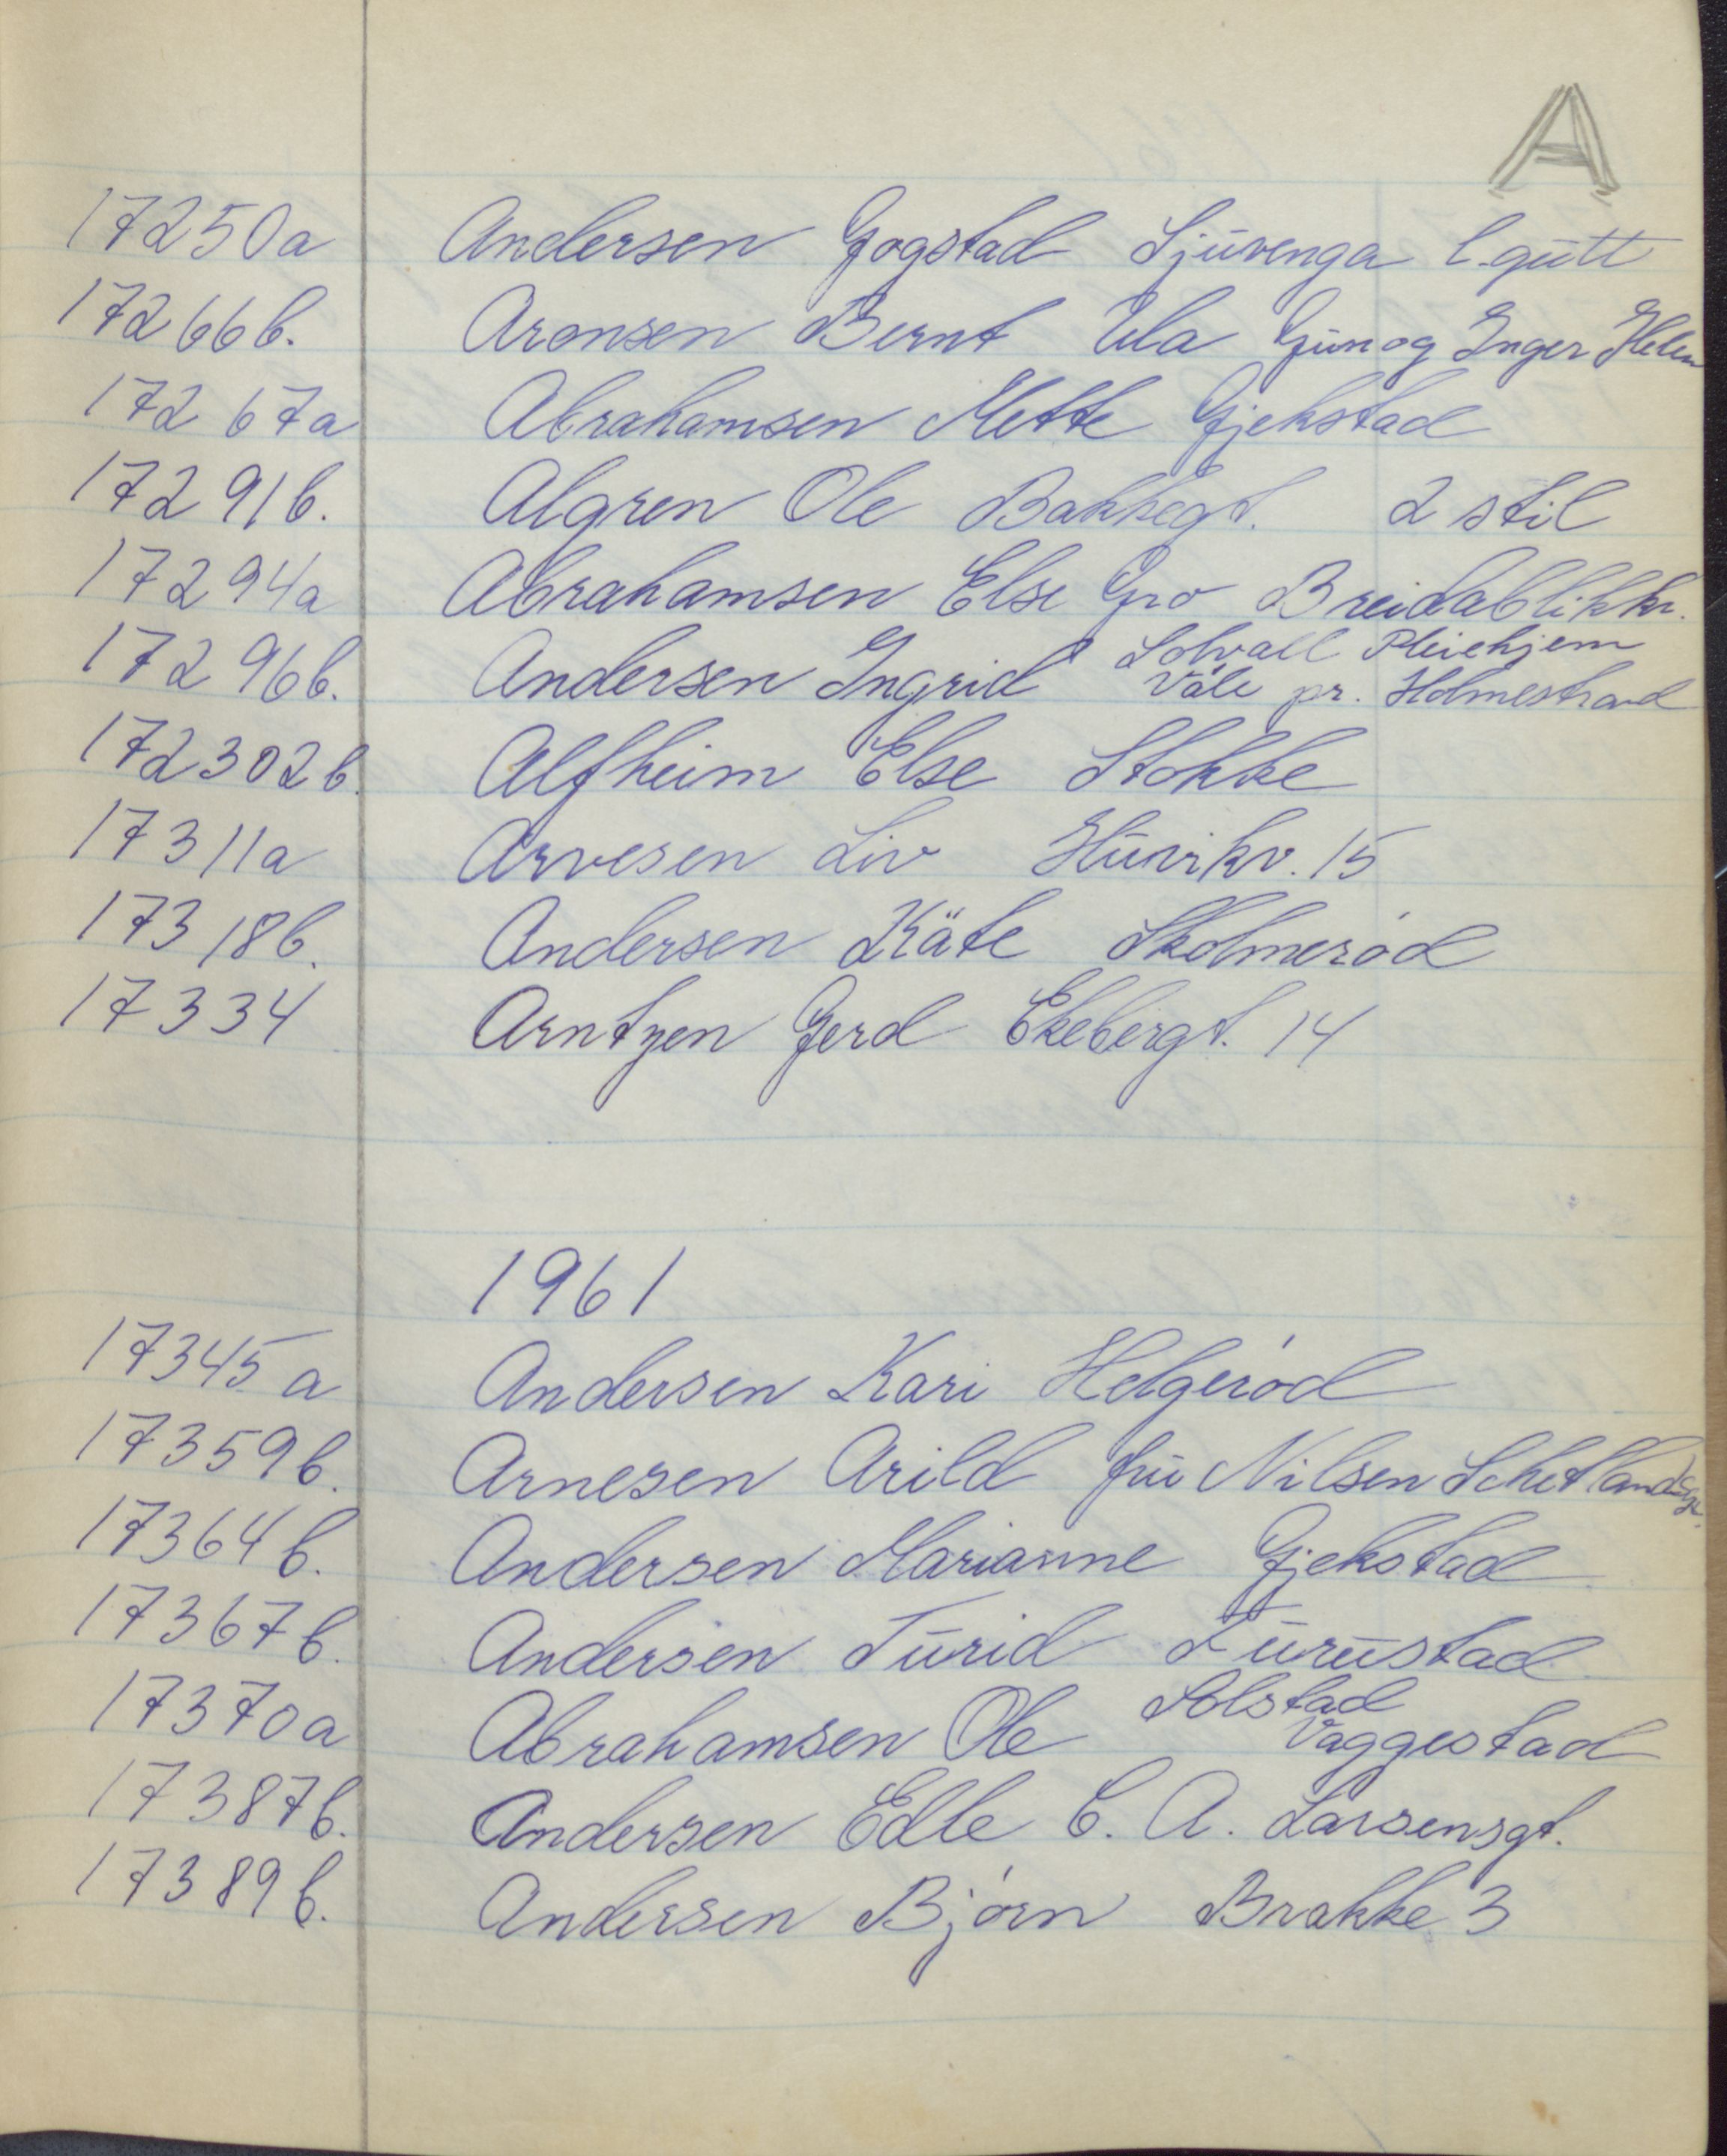 A
17250a Andersen Gogstad Sjuvenga l.gutt
17266b. Aronsen Bernt Ula Gunn og Inger Helen
17267a Abrahamsen Mette Gjekstad
17291b. Algren Ole Bakkegt. 2 stil
17294a Abrahamsen Else Gro Breidablikkv.
17296b. Andersen Ingrid Solvall Pleiehjem
Våle pr. Holmestrand
172302b. Alfheim Else Stokke
17311a Arvesen Liv Hunikv. 15
17318b. Andersen Käte Skolmerød
17334 Arntzen Gerd Ekebergt. 14
1961
17345a Andersen Kari Helgerød
17359b. Arnesen Arild fru Nilsen Schetlandsgt.
17364b. Andersen Marianne Gjekstad
17367b. Andersen Turid Furustad
17370a Abrahamsen Ole Solstad
Vaggestad
17387b. Andersen Edle C. A. Larsensgt.
17389b. Andersen Bjørn Brakke 3